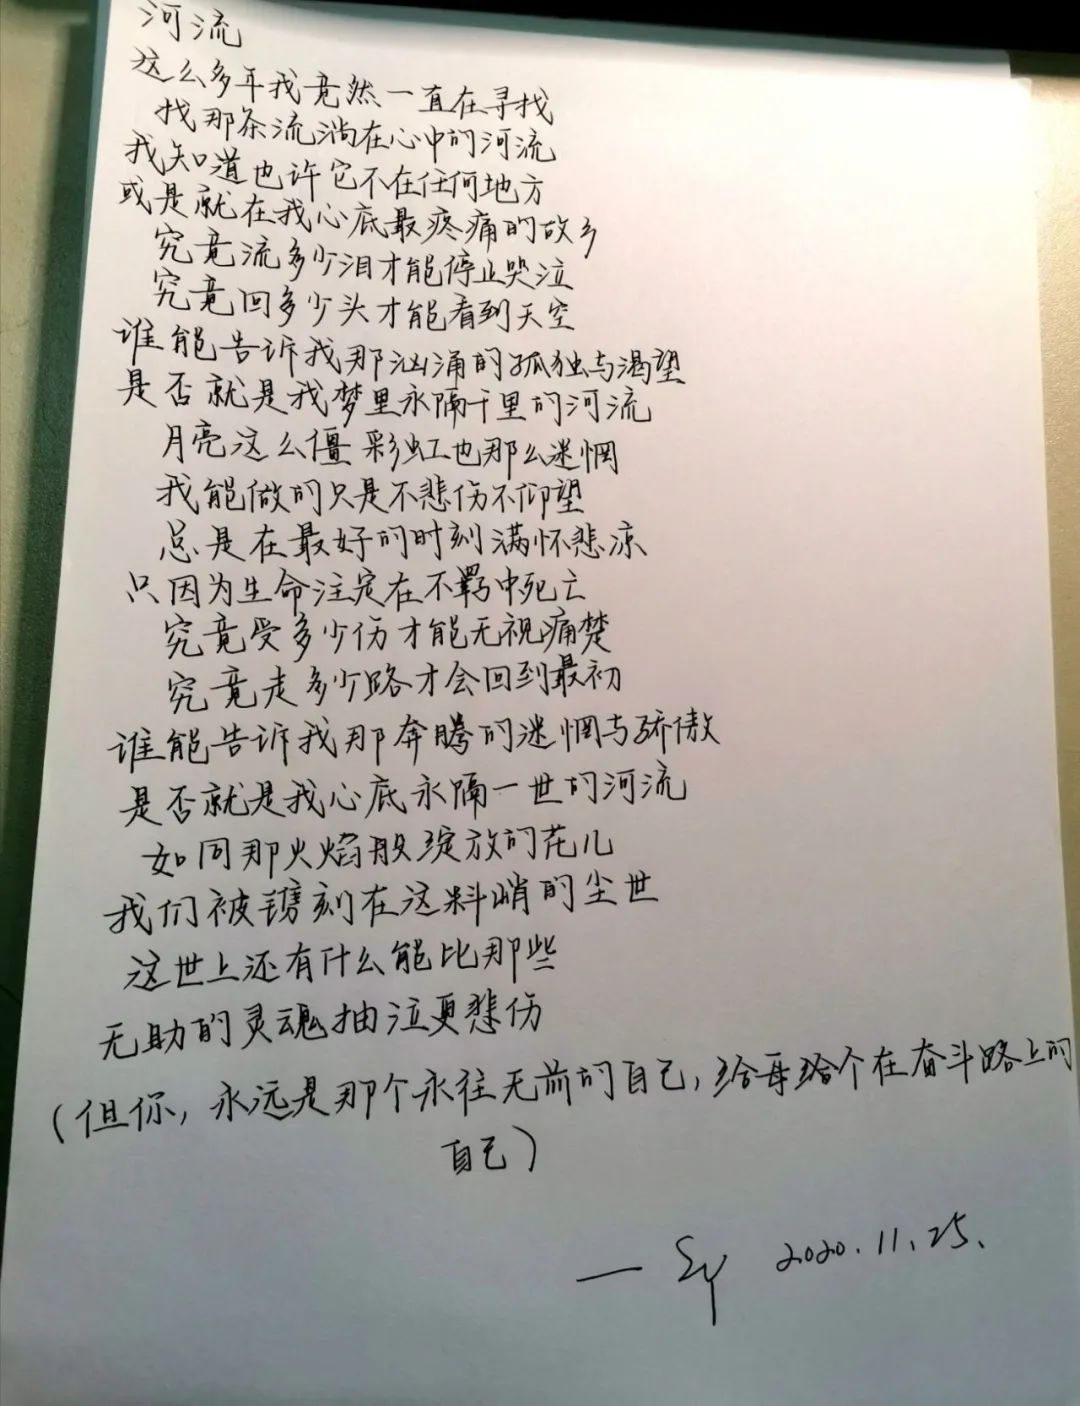 河流
这么多年我竟然一直在寻找
找那条流淌在心中的河流
我知道也许它不在任何地方
或是就在我心底最疼痛的故乡
究竟流多少泪才能停止哭泣
究竟回多少头才能看到天空
谁能告诉我那汹涌的孤独与渴望
是否就是我梦里永隔千里的河流
月亮这么僵 彩虹也那么迷惘
我能做的只是不悲伤不仰望
总是在最好的时刻满怀悲凉
只因为生命注定在不羁中死亡
究竟受多少伤才能无视痛楚
究竟走多少路才会回到最初
谁能告诉我那奔腾的迷惘与骄傲
是否就是我心底永隔一世的河流
如同那火焰般绽放的花儿
我们被镌刻在这料峭的尘世
这世上还有什么能比那些
无助的灵魂抽泣更悲伤
(但你,永远是那个永往无前的自己,给每给个在奋斗路上的
自己)
— 2020.11.25.